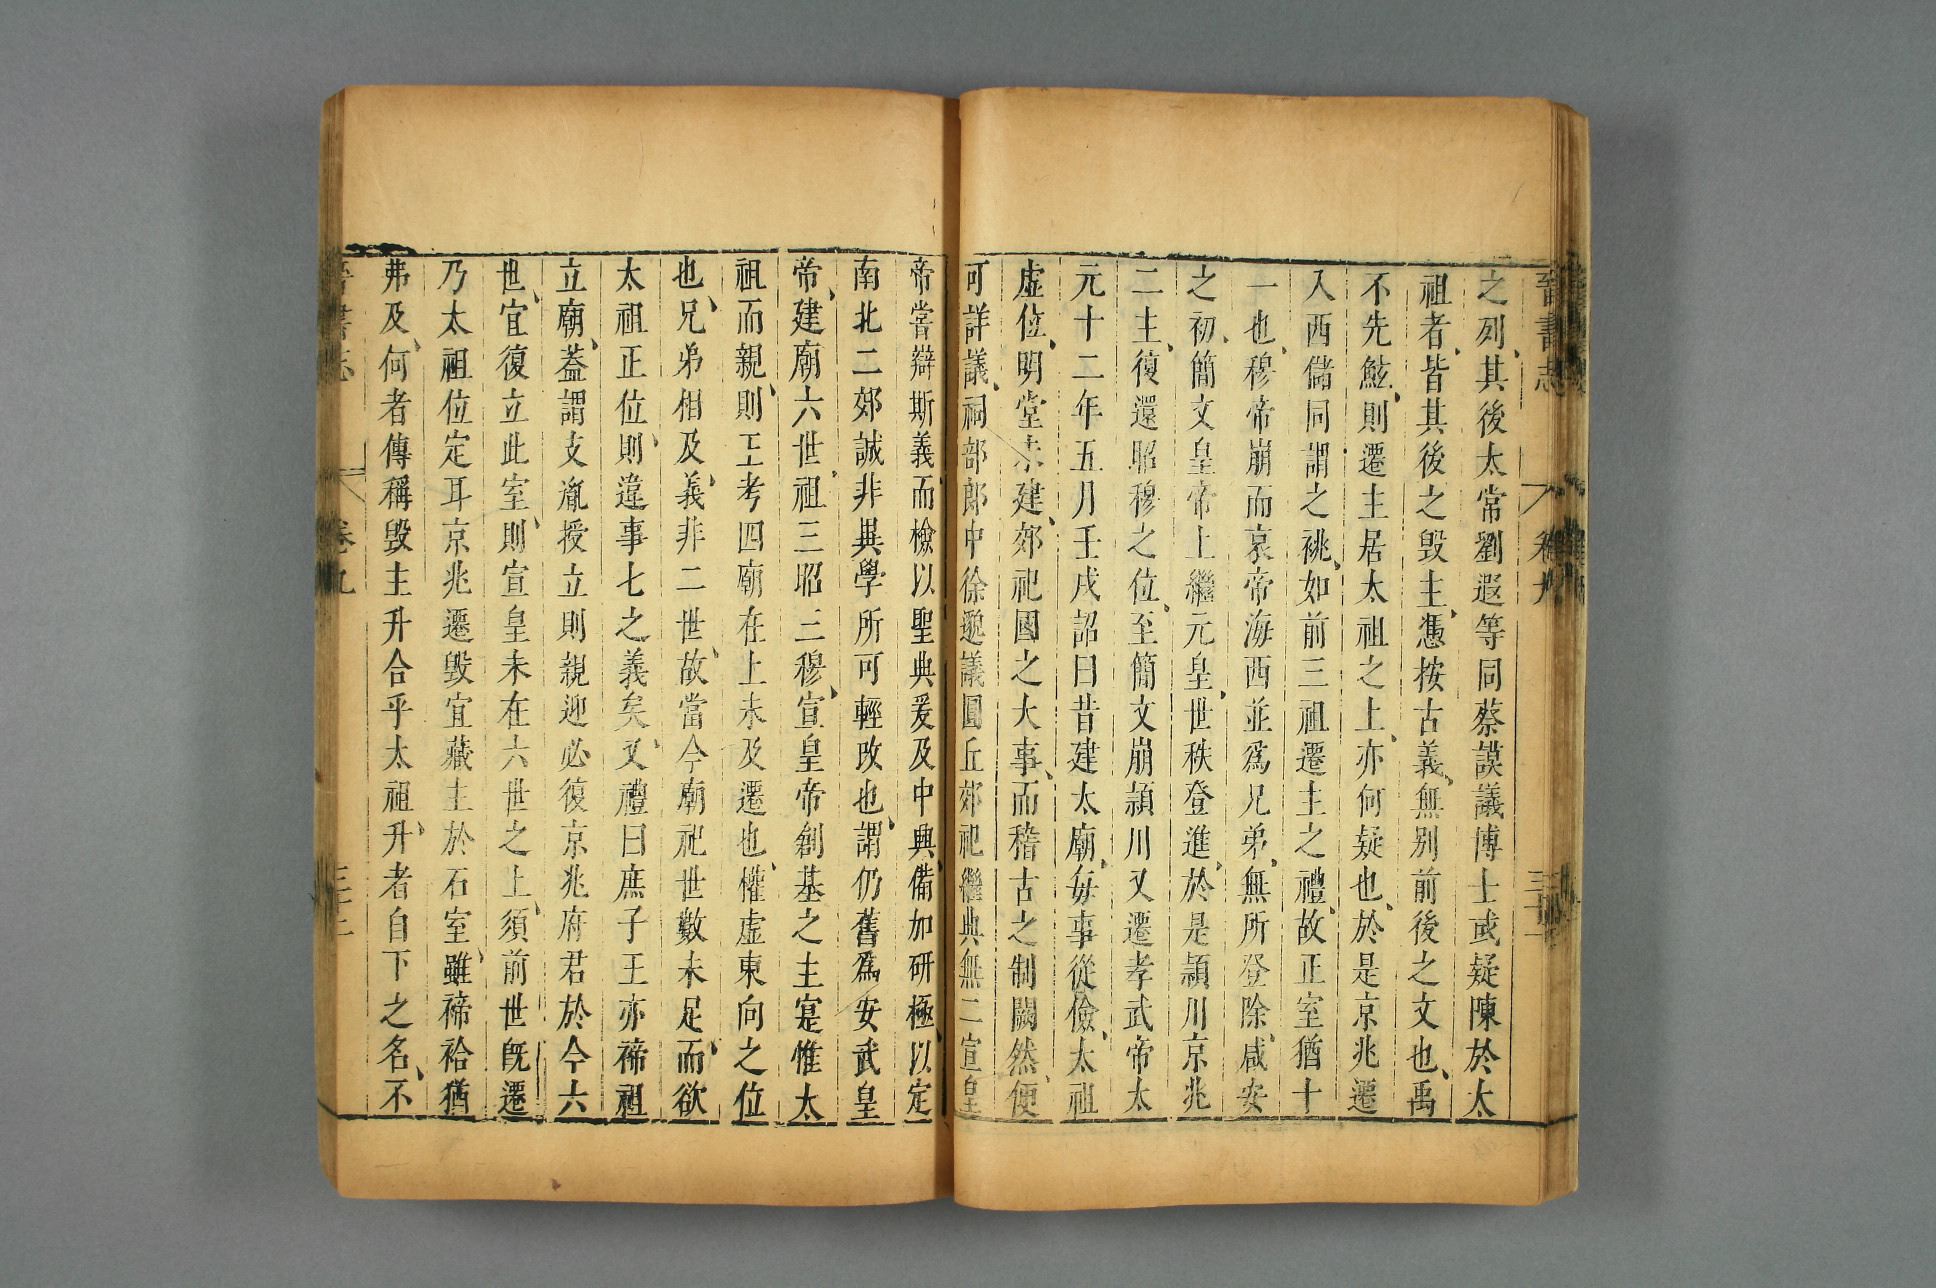 晉書志 卷九
之列其後太常劉遐等同蔡謨議博士或疑陳於太
祖者皆其後之毀主憑按古義無別前後之文也禹
不先鮌則遷主居太祖之上亦何疑也於是京兆遷
入西儲同謂之祧如前三祖遷主之禮故正室猶十
一也穆帝崩而哀帝海西並爲兄弟無所登除咸安
之初簡文皇帝上繼元皇世秩登進於是潁川京兆
二主復還昭穆之位至簡文崩潁川又遷孝武帝太
元十二年五月壬戌詔曰昔建太廟每事從儉太祖
虛位明堂未建郊祀國之大事而稽古之制闕然便
可詳議祠部郎中徐邈議圓丘郊祀經典無二宣皇
帝嘗辯斯義而檢以聖典爰及中興備加研極以定
南北二郊誠非異學所可輕改也謂仍舊爲安武皇
帝建廟六世祖三昭三穆宣皇帝創基之主寔惟太
祖而親則王考四廟在上未及遷也權虛東向之位
也兄弟相及義非二世故當今廟祀世數未足而欲
太祖正位則違事七之義矣又禮曰庶子王亦禘祖
立廟蓋謂支胤授立則親近必復京兆府君於今六
世宜復立此室則宣皇未在六世之上須前世既遷
乃太祖位定耳京兆遷毀宜藏主於石室雖禘祫猶
弗及何者傳稱毀主升合乎太祖升者自下之名不
晉書志 卷九